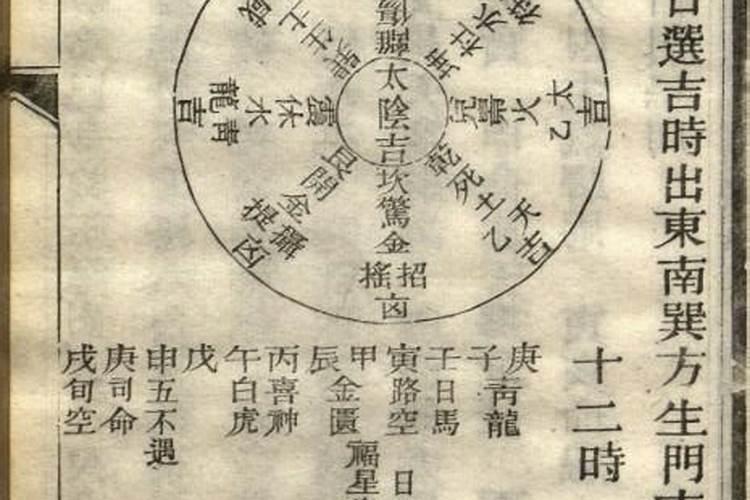 日選吉時出東南巽方生門
十二時
太陰吉
坎驚金招搖凶
艮開金攝提凶
震休水青龍吉
巽生土咸
離傷
坤杜木符
兌景火太乙吉
乾死土天乙吉
庚子青龍
壬日馬
寅路空
日
甲辰金匱
福星
丙喜神
午白虎
戊
申五不遇
庚司命
戌旬空